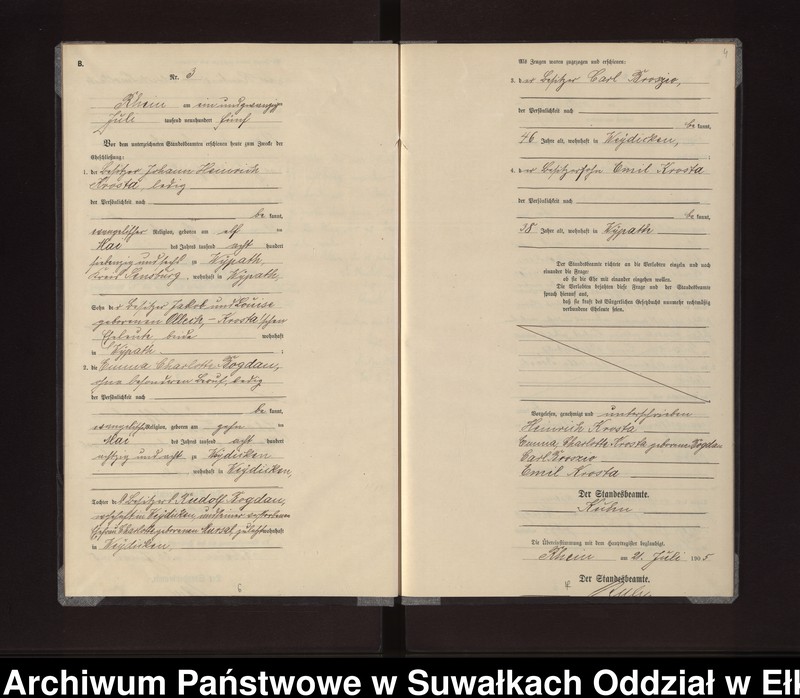 B.
Nr. 3
Rhein am einundzwanzigsten
Juli tausend neunhundert fünf
Vor dem unterzeichneten Standesbeamten erschienen heute zum Zwecke der
Eheschließung:
1. der Besitzer Johann Heinrich
Krosta, ledig
der Persönlichkeit nach
be kannt,
evangelischer Religion, geboren am elf ten
Mai des Jahres tausend acht hundert
siebenzig und sechs in Wÿpath,
Kreis Sensburg, wohnhaft in Wÿpath,
Sohn der Besitzer Jakob und Louise
geborenen Olleck, - Krosta'schen
Eheleute beide wohnhaft
in Wÿpath ;
2. die Emma Charlotte Bogdan,
ohne besonderen Beruf, ledig
der Persönlichkeit nach
be kannt,
evangelischer Religion, geboren am zehn ten
Mai des Jahres tausend acht hundert
achtzig und acht in Weÿdicken
wohnhaft in Weÿdicken,
Tochter des Besitzers Rudolf Bogdan,
wohnhaft in Weÿdicken, und seiner verstorbenen
Ehefrau Charlotte geborenen zuletzt wohnhaft
in Weÿdicken,
Als Zeugen waren zugezogen und erschienen:
3. der Besitzer Carl
der Persönlichkeit nach
be kannt,
46 Jahre alt, wohnhaft in Weÿdicken,
;
4. der Besitzersohn Emil Krosta
der Persönlichkeit nach
be kannt,
38 Jahre alt, wohnhaft in Wÿpath
Der Standesbeamte richtete an die Verlobten einzeln und nach
einander die Frage:
ob sie die Ehe mit einander eingehen wollen.
Die Verlobten bejahten diese Frage und der Standesbeamte
sprach hierauf aus,
daß sie kraft des Bürgerlichen Gesetzbuchs nunmehr rechtmäßig
verbundene Eheleute seien.
Vorgelesen, genehmigt und unterschrieben
Heinrich Krosta
Emma Charlotte Krosta geborene Bogdan
Carl
Emil Krosta
Der Standesbeamte.
Kuhn
Die Übereinstimmung mit dem Hauptregister beglaubigt.
Rhein am 21. Juli 1905
Der Standesbeamte.
Kuhn
Archiwum Państwowe w Suwałkach Oddział w Eł